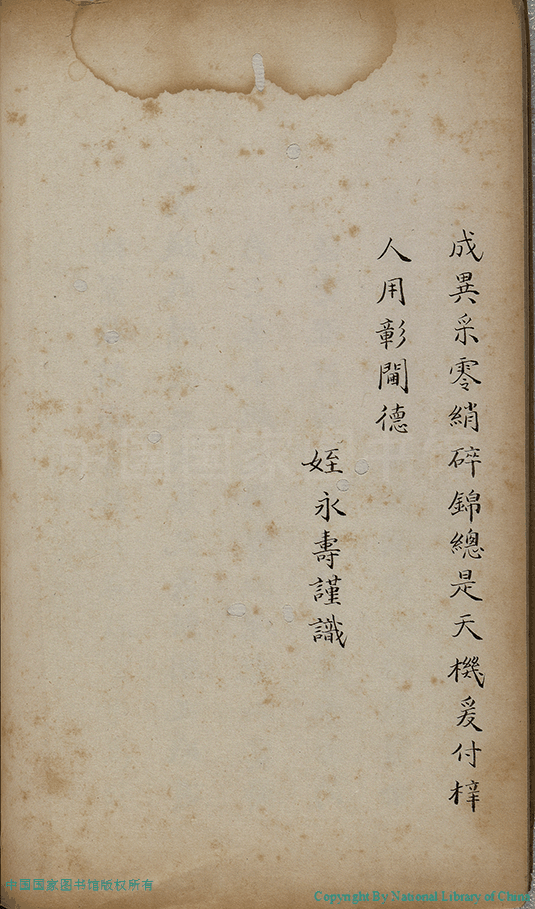 成異采零綃碎錦總是天機爰付梓
人用彰閫德
姪永壽謹識
中国国家图书馆版权所有
Copyright By National Library of China